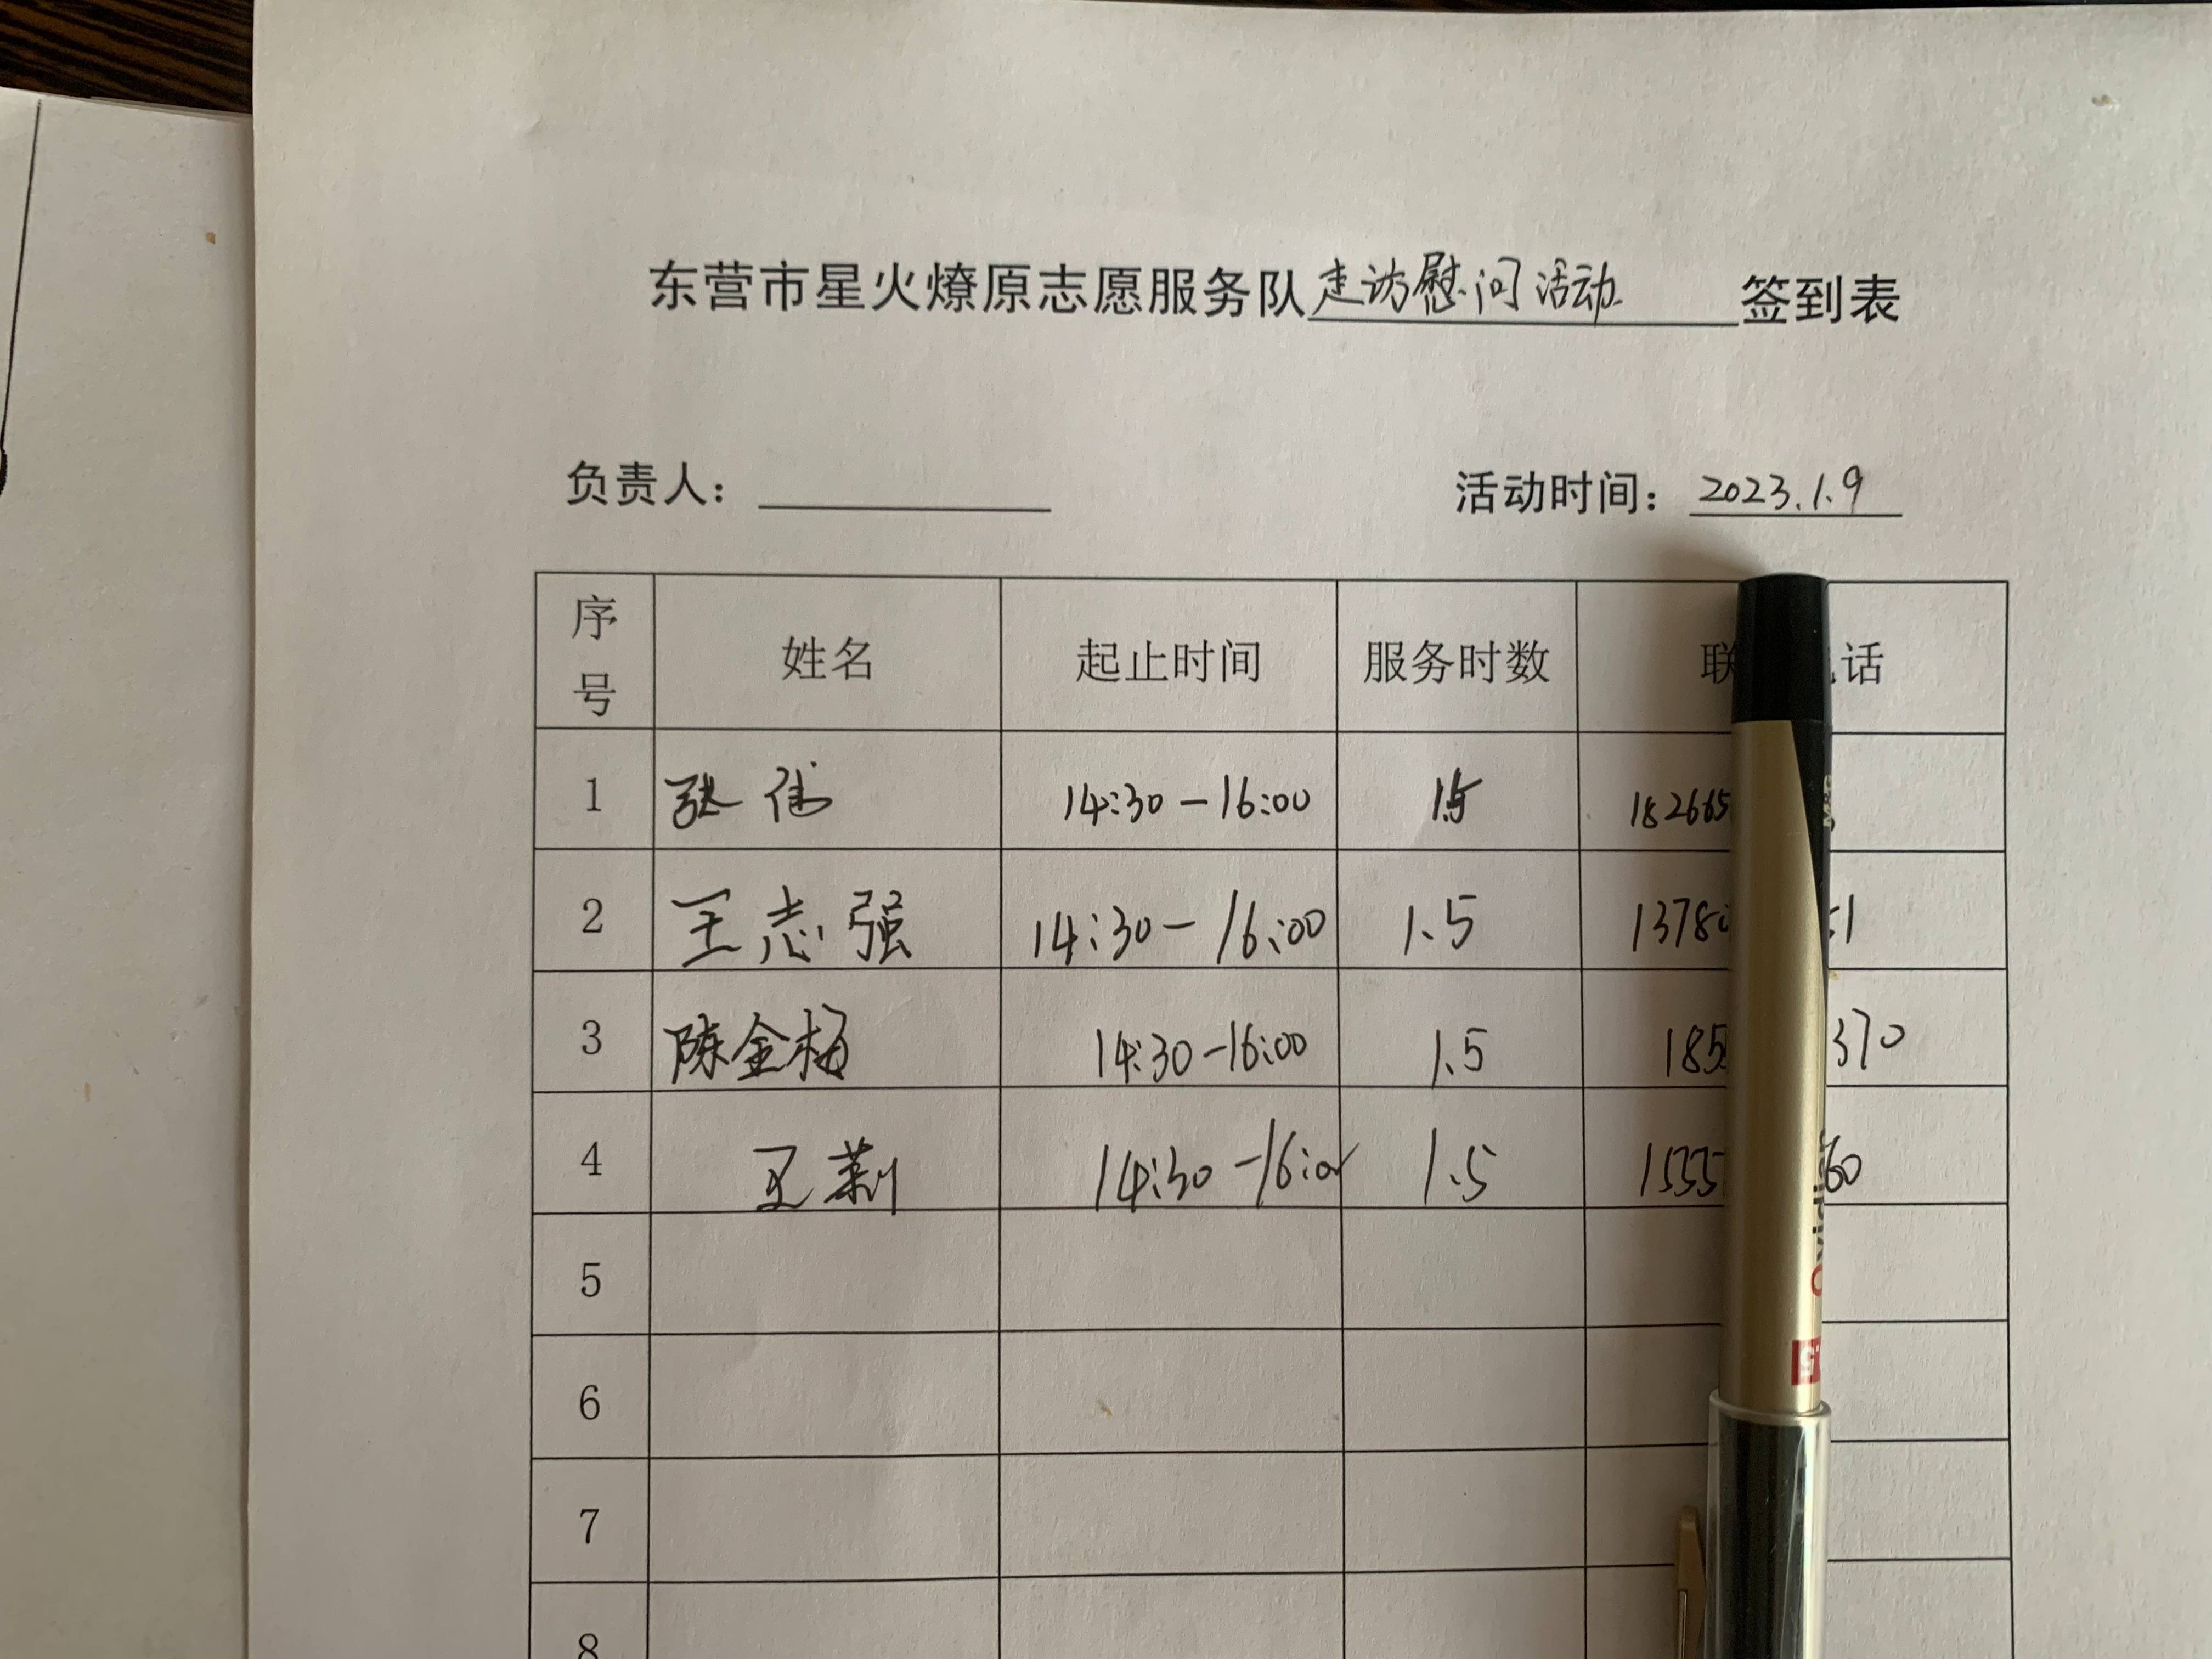 东营市星火燎原志愿服务队走访慰问活动 签到表
负责人： 活动时间：2023.1.9
序号 姓名 起止时间 服务时数 联 话
1 张伟 14:30-16:00 1.5 18266
2 王志强 14:30-16:00 1.5 1378 1
3 陈金梅 14:30-16:00 1.5 185 370
4 王莉 14:30-16:00 1.5 1555 60
5
6
7
8